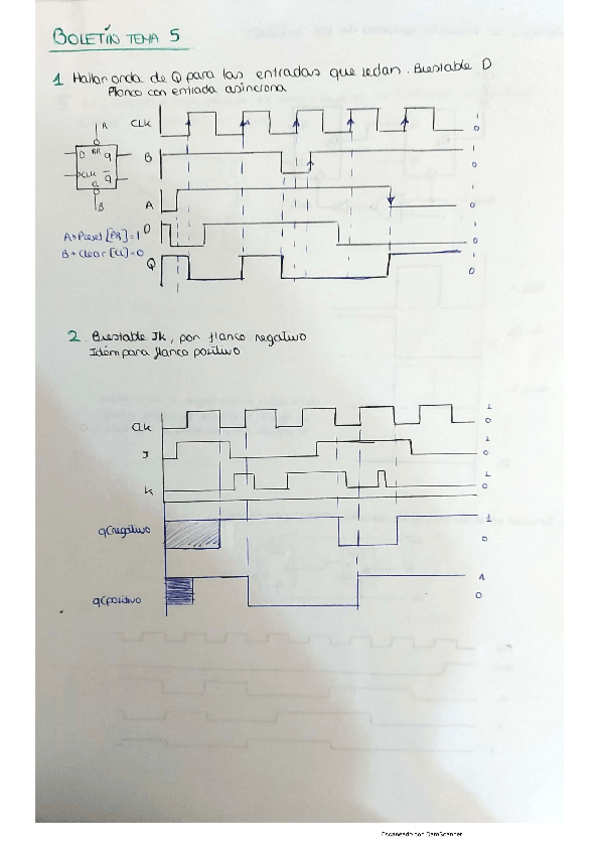 BOLETÍN TEMA 5
1 Hallar onda de Q para las entradas que se dan. Biestable D
Flanco con entrada asincrona
CLK
1
0
A
D
PR
q
CLK
q
CL
B
B
1
0
A
1
0
A→Preset [PR]=1
B→Clear [CL]=0
D
1
0
Q
1
0
2. Biestable Jk, por flanco negativo
Idém para flanco positivo
CLK
1
0
J
1
0
k
1
0
q(negativo
1
0
q(positivo
1
0
Escaneado con CamScanner